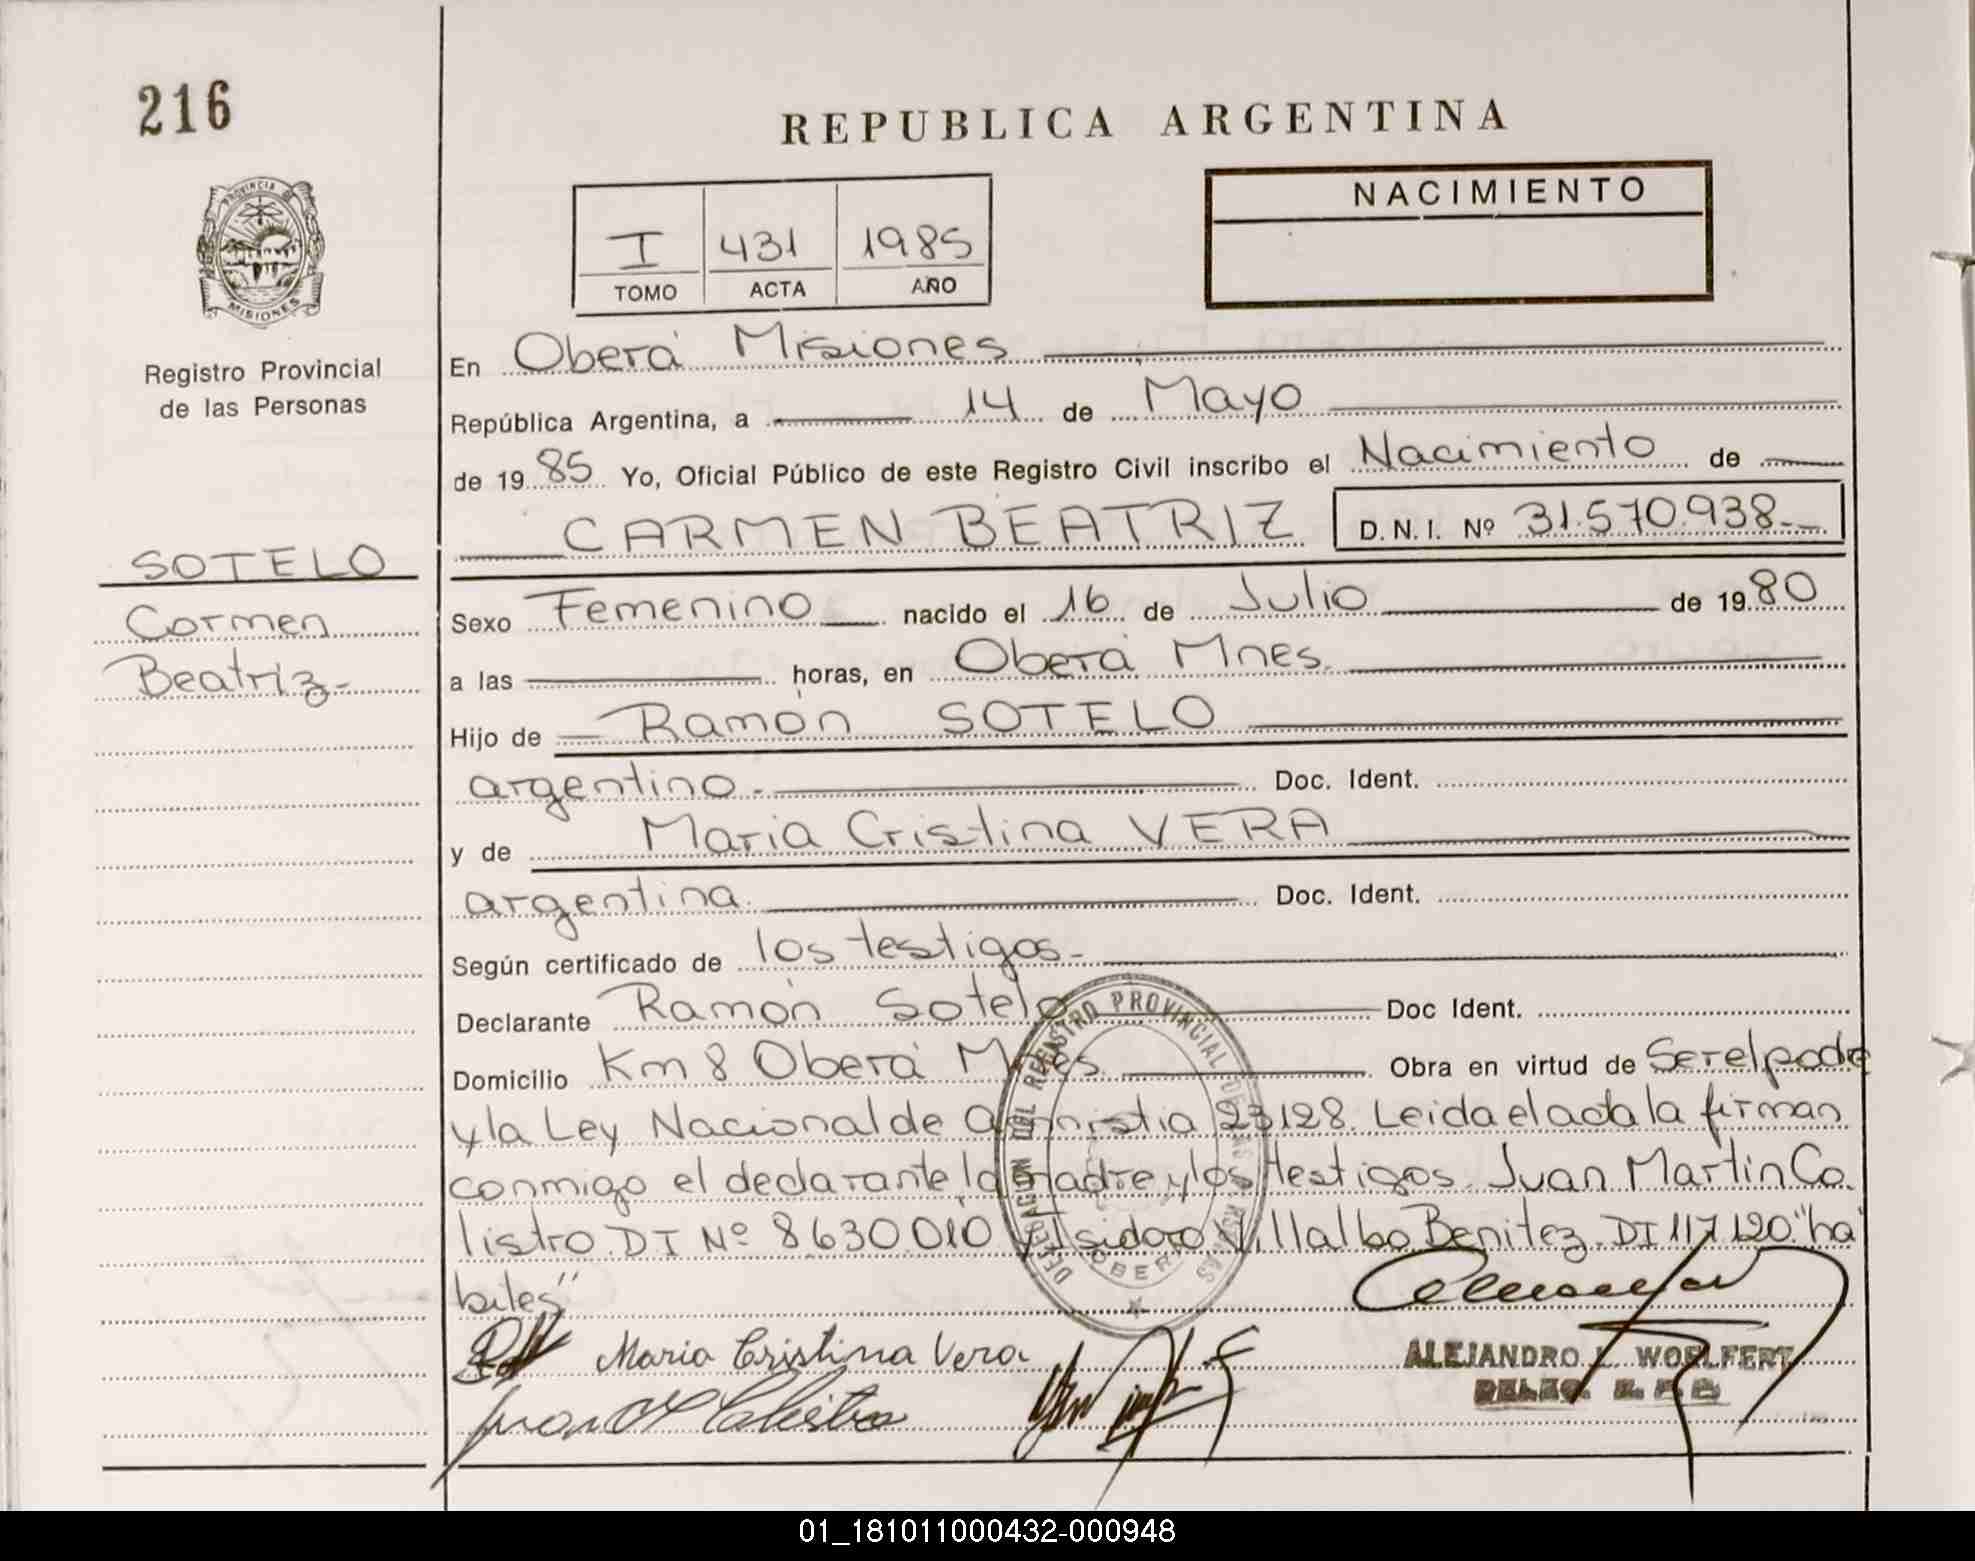 216
REPUBLICA ARGENTINA
PROVINCIA DE
MISIONES
Registro Provincial
de las Personas
I 431 1985
TOMO ACTA AÑO
NACIMIENTO
En Oberá Misiones
República Argentina, a 14 de Mayo
de 19 85 Yo, Oficial Público de este Registro Civil inscribo el Nacimiento de
CARMEN BEATRIZ D.N.I. Nº 31.570.938-
SOTELO
Carmen
Beatriz-
Sexo Femenino nacido el 16 de Julio de 19 80
a las horas, en Oberá Mnes.
Hijo de Ramón SOTELO
argentino. Doc. Ident.
y de Maria Cristina VERA
argentina. Doc. Ident.
Según certificado de los testigos-
Declarante Ramón Sotelo Doc Ident.
Domicilio Km 8 Oberá Mnes. Obra en virtud de Ser el padre
y la Ley Nacional de Amnistia 23128. Leida el acta la firman
conmigo el declarante, la madre y los testigos Juan Martin Ca
listro DI Nº 8.630.010 y Isidoro Villalba Benitez DI 117.120 "ha
biles"
DELEGACION DEL REGISTRO PROVINCIAL DE LAS PERSONAS
OBERA
Maria Cristina Vera
Juan M Calistro
ALEJANDRO L. WOELFERT
01_181011000432-000948